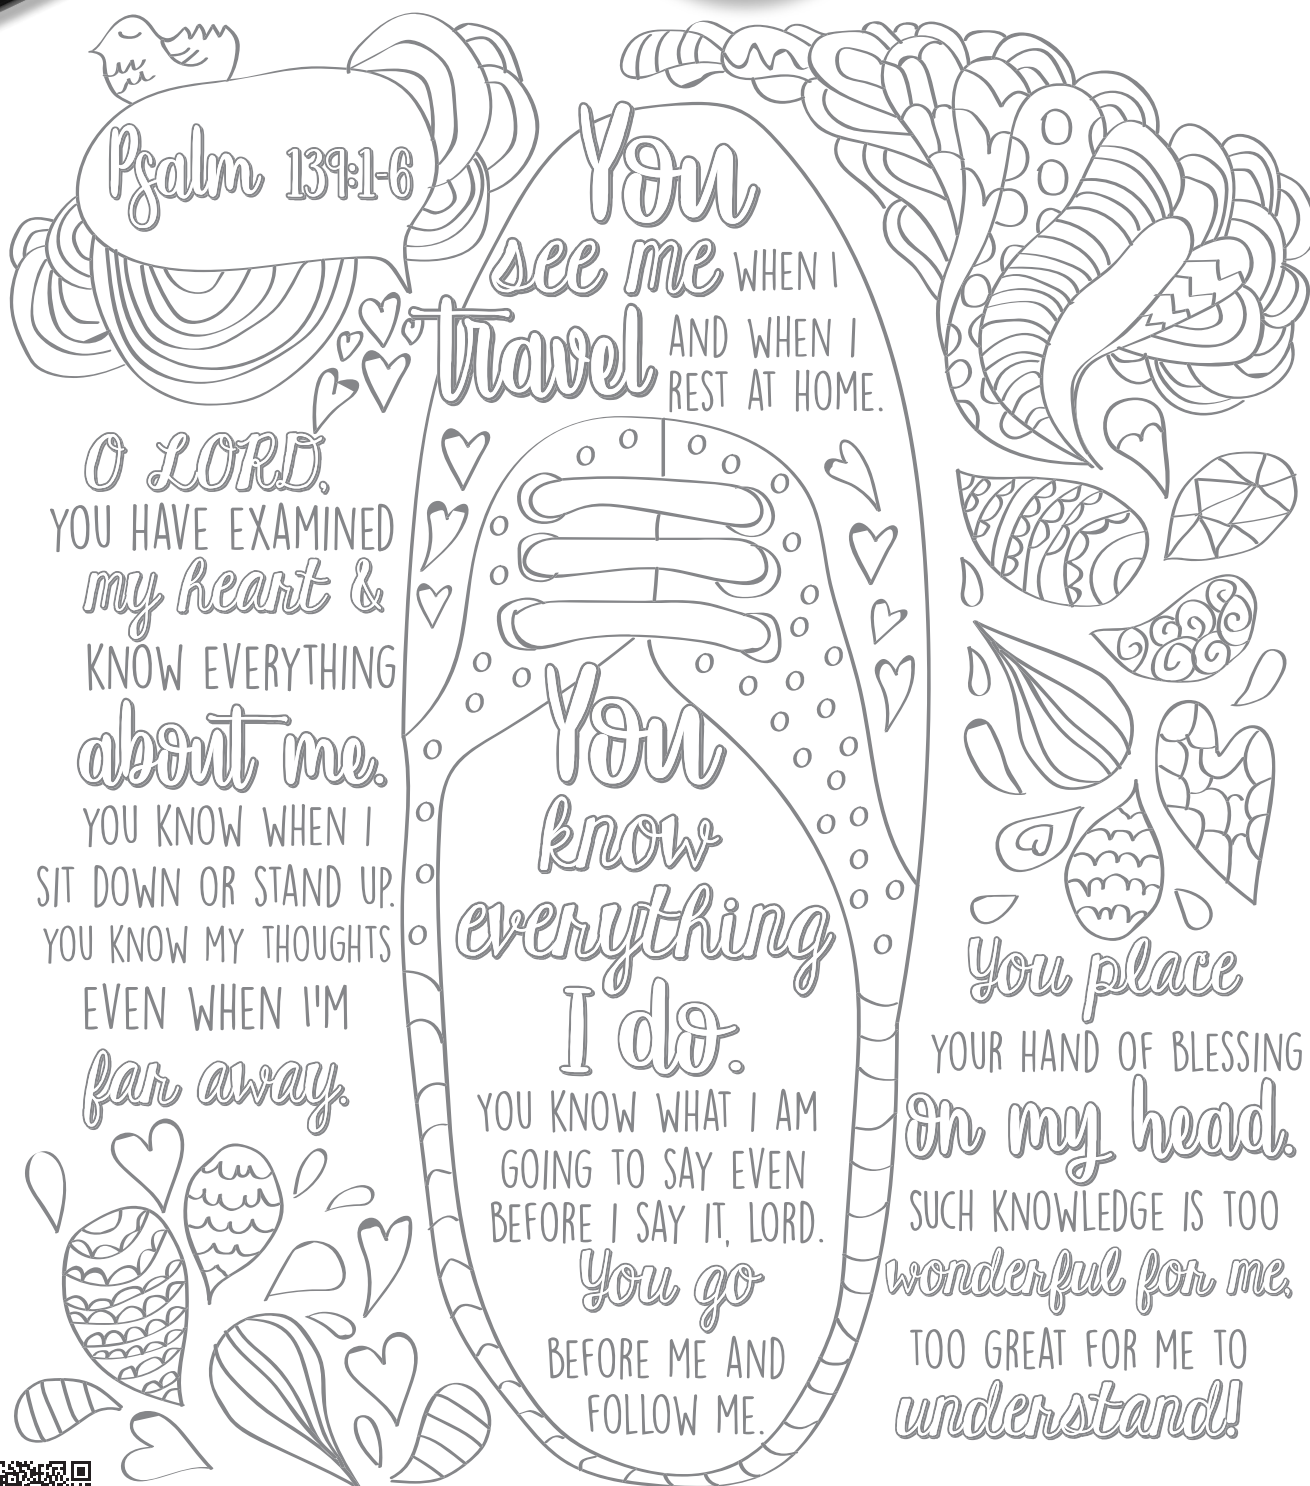 Psalm 139:1-6
O LORD,
YOU HAVE EXAMINED
my heart &
KNOW EVERYTHING
about me.
YOU KNOW WHEN I
SIT DOWN OR STAND UP.
YOU KNOW MY THOUGHTS
EVEN WHEN I'M
far away.
You
see me WHEN I
travel AND WHEN I
REST AT HOME.
You
know
everything
I do.
YOU KNOW WHAT I AM
GOING TO SAY EVEN
BEFORE I SAY IT, LORD.
You go
BEFORE ME AND
FOLLOW ME.
You place
YOUR HAND OF BLESSING
on my head.
SUCH KNOWLEDGE IS TOO
wonderful for me,
TOO GREAT FOR ME TO
understand!